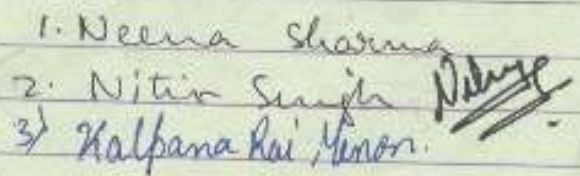 1. Neena Sharma
2. Nitin Singh
3) Kalpana Rai Menon.